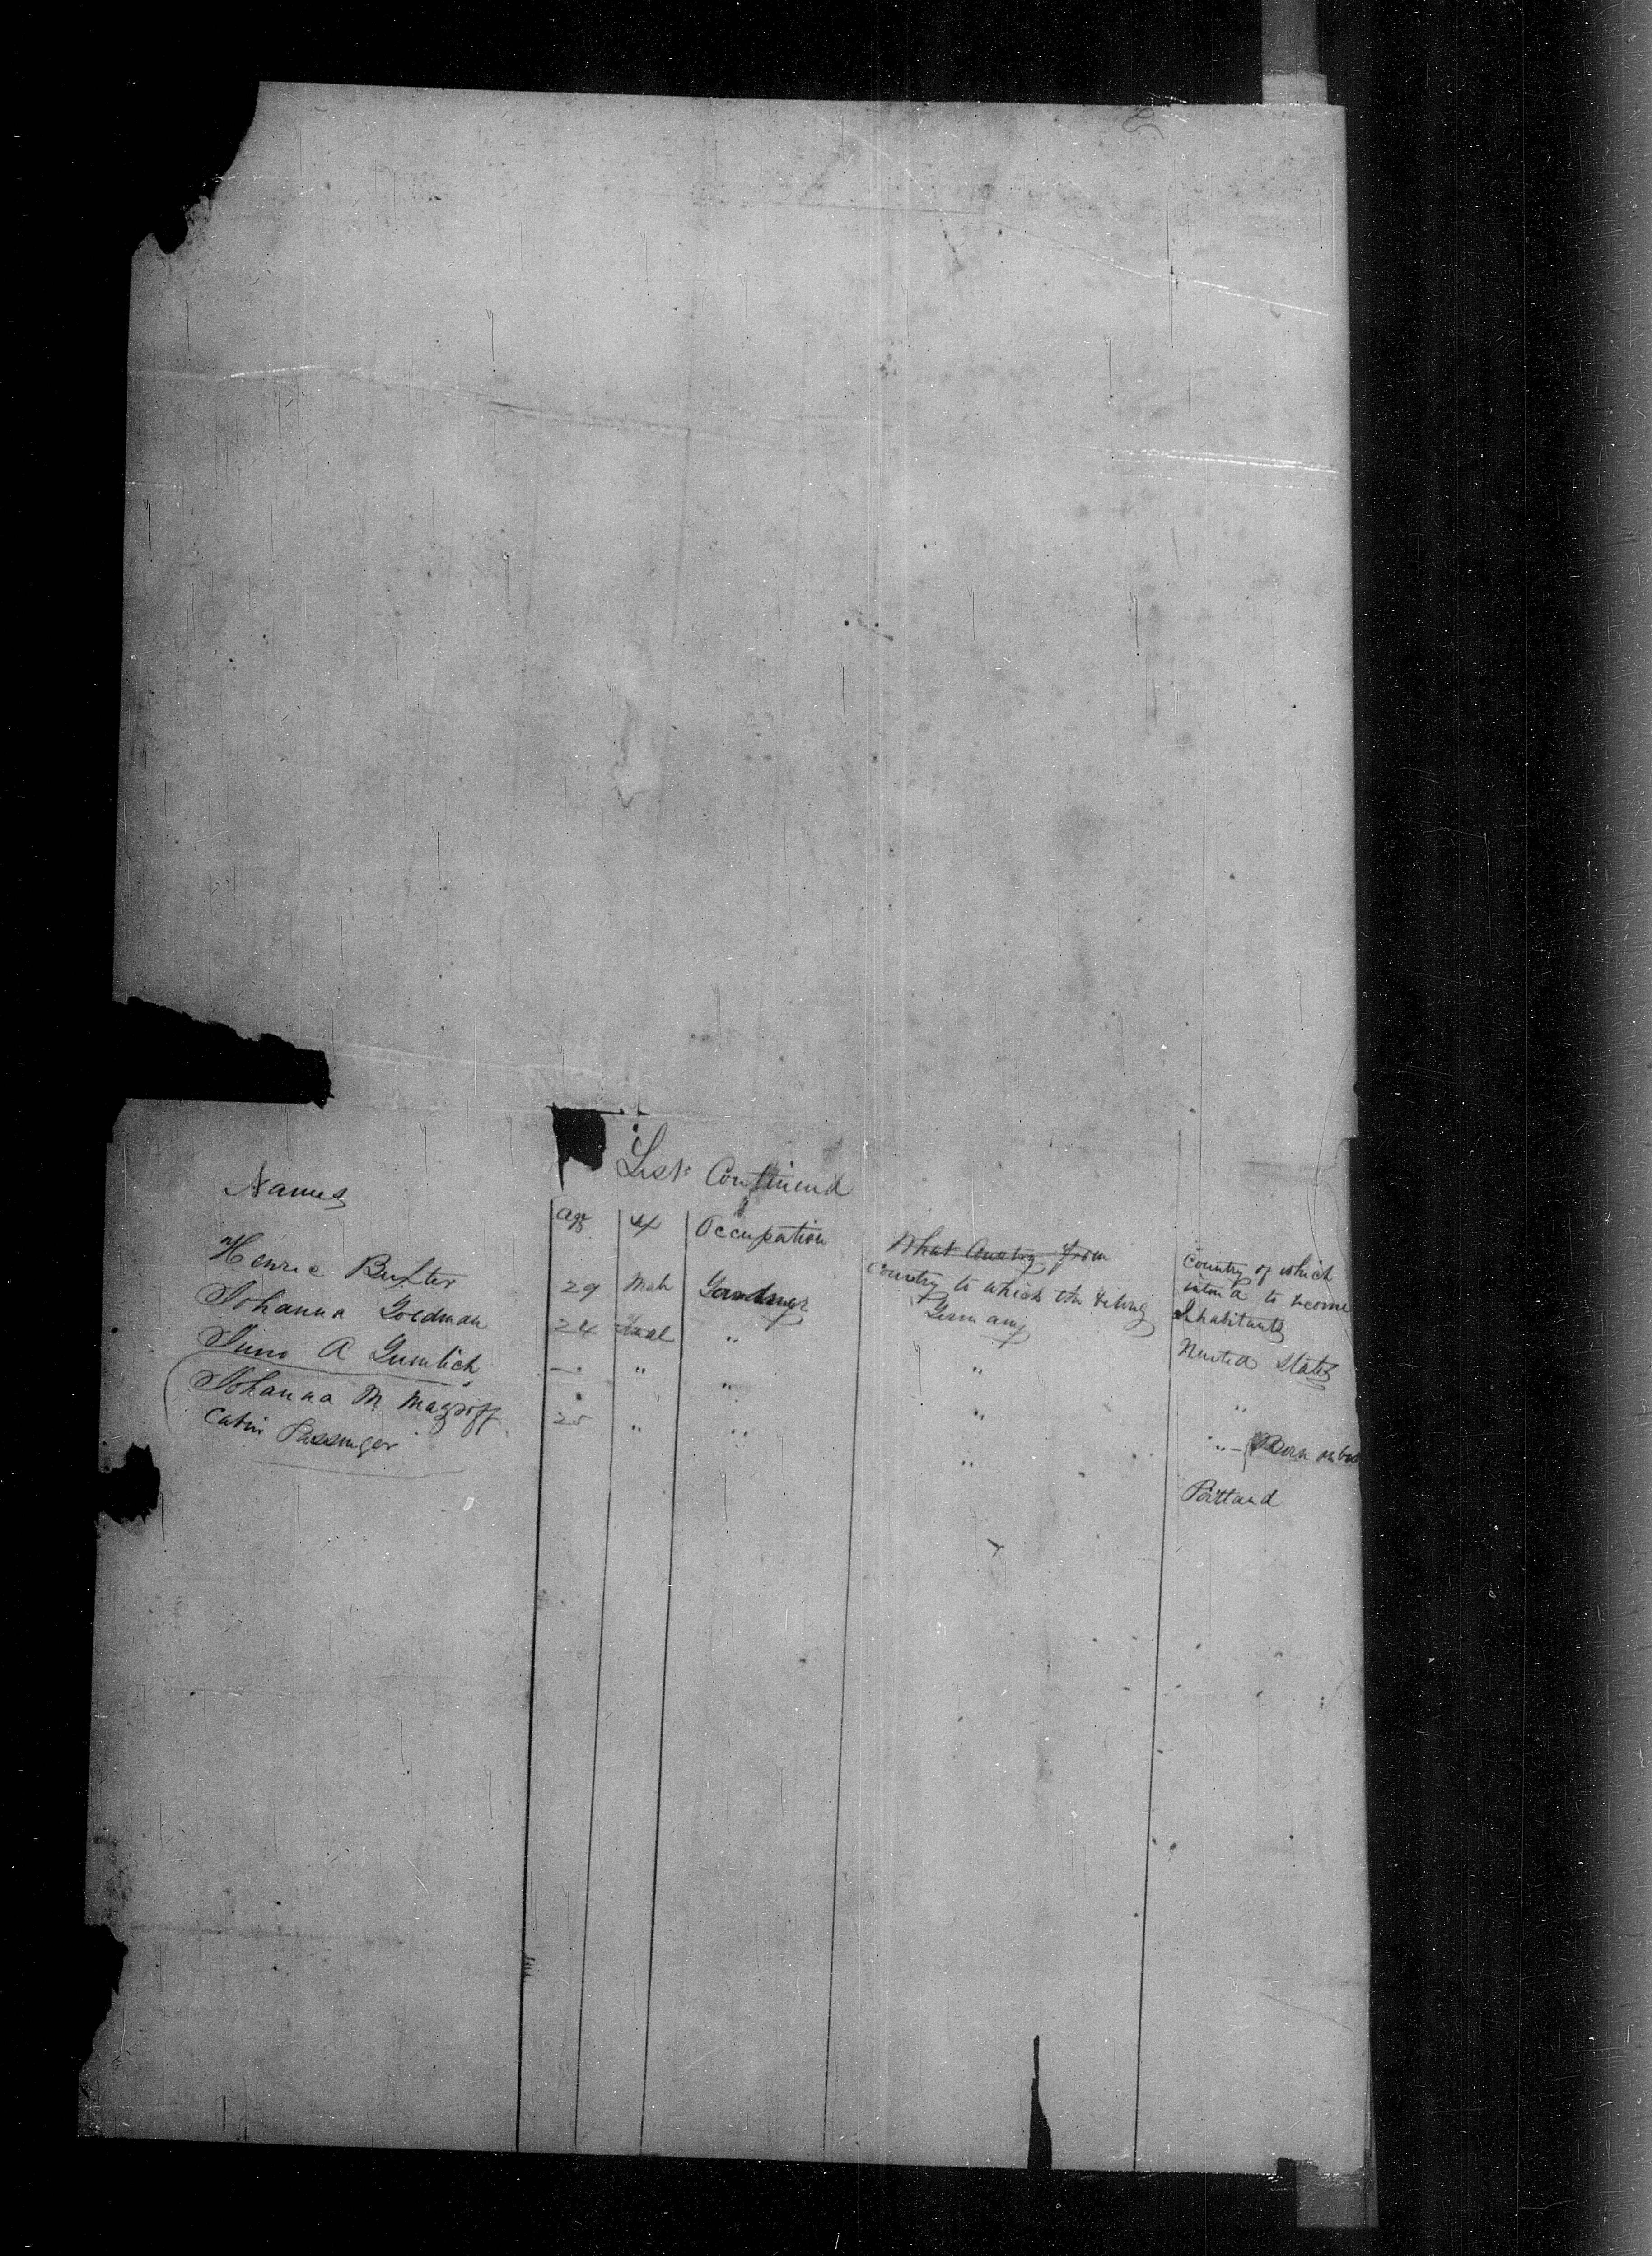 List Continuend
Names age sex Occupation What Country from
country to which the belong
country of which
intend to become
Inhabitants
Henrie Buxter 29 Male Gardner Germany United States
Johanna Goedman 24 " " "
A Gumlich — " " " " Born on
Johanna M Magroff 25 " " " Portland
Cabin Passenger